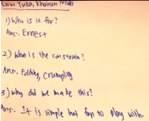 1) Who is it for?
Ans:- Ernest
2) What is the constrain?
Ans:- Folding, Crumpling
3) Why did we make this?
Ans:- It is simple but fun to play with